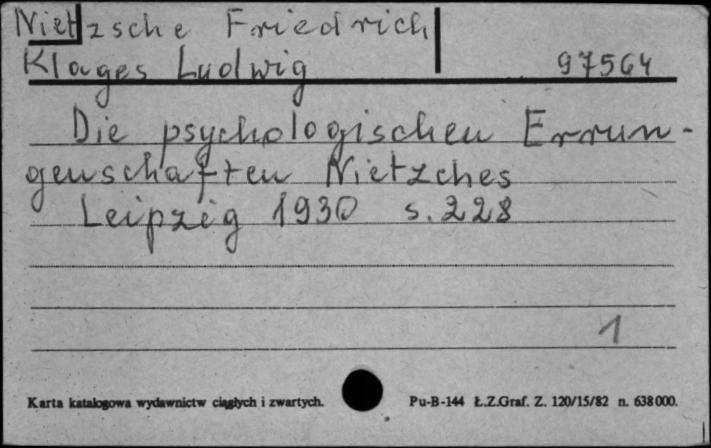 Nietzsche Friedrich
Klages Ludwig 97564
Die psychologischen Errun-
genschaften Nietzches
Leipzig 1930 s. 228
1
Karta katalogowa wydawnictw ciągłych i zwartych. Pu-B-144 Ł.Z.Graf. Z. 120/15/82 n. 638000.